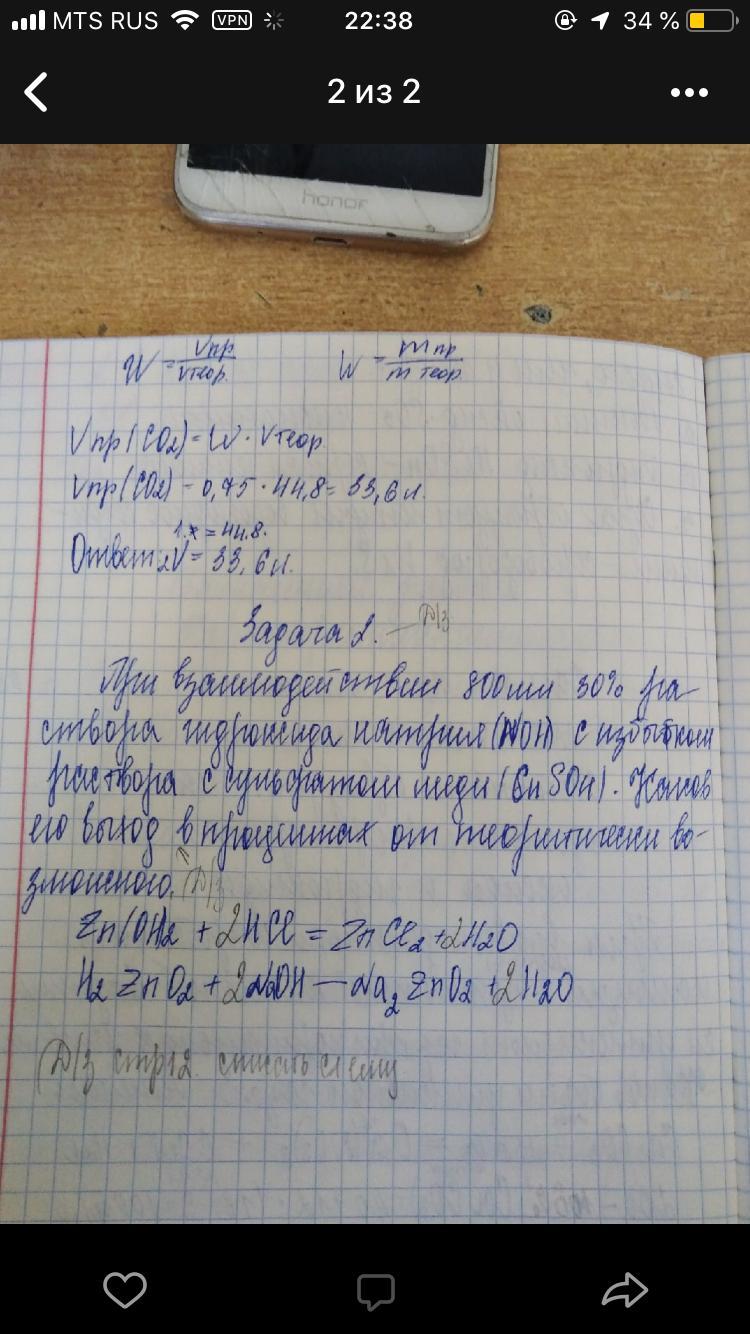 MTS RUS VPN 22:38 34 %
2 из 2
honor
W = Vпр / Vтеор. W = m пр / m теор.
Vпр(CO2) = W · Vтеор
Vпр(CO2) = 0,75 · 44,8 = 33,6 л.
1. x = 44.8.
Ответ: 2V = 33,6 л.
Задача 2. — Д/з
При взаимодействии 800 мл 30% ра-
створа гидроксида натрия (NOH) с избытком
раствора с сульфатом меди (CuSO4). Каков
его выход в процентах от теоритически во-
зможного. Д/з
Zn(OH)2 + 2HCl = ZnCl2 + 2H2O
H2ZnO2 + 2NaOH — Na2ZnO2 + 2H2O
Д/з стр 12. списать схему